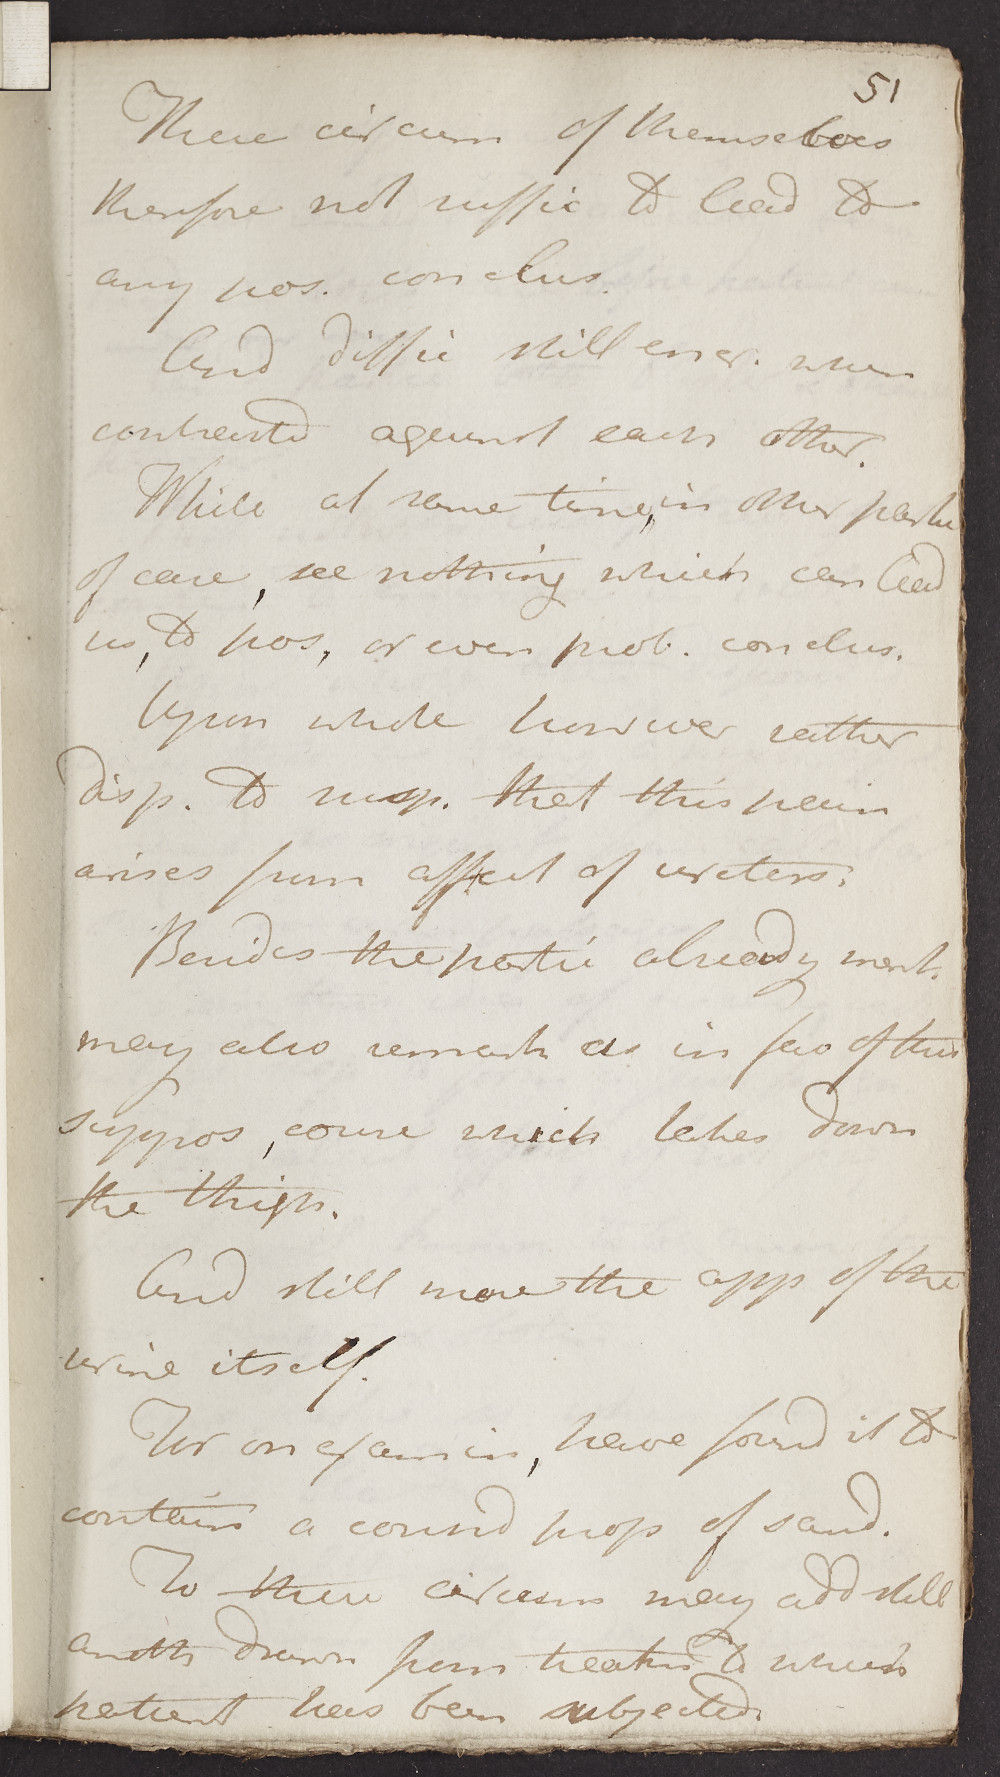 51
These circum of themselves
therefore not suffic to lead to
any pos. conclus.
And diffic still encr. when
contrasted against each other.
While at same time, in other partic
of case, see nothing which can lead
us, to pos, or even prob. conclus.
Upon whole however rather
disp. to susp. that this pain
arises from affect of ureters.
Besides the partic already ment.
may also remark as in fav of this
suppos, course which takes down
the thigh.
And still more the app of the
urine itself.
For on examin, have found it to
contain a consid prop of sand.
To these circum may add still
anoth drawn from treatm to which
patient has been subjected.